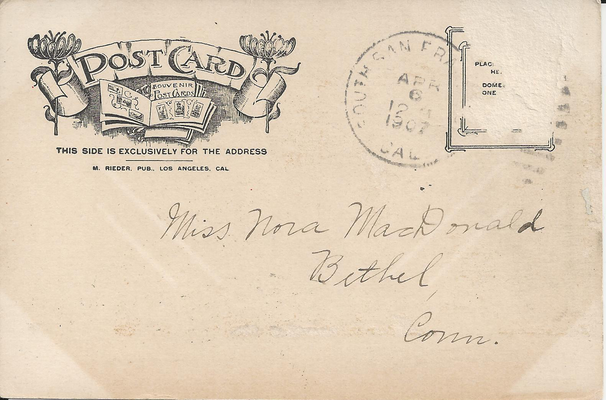 POST CARD
SOUVENIR
POST CARDS
THIS SIDE IS EXCLUSIVELY FOR THE ADDRESS
M. RIEDER, PUB., LOS ANGELES, CAL
SOUTH SAN FRA
APR
6
12 M
1907
CAL
PLAC
HE
DOME
ONE
Miss Nora MacDonald
Bethel,
Conn.